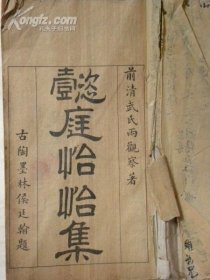 前清武氏兩觀察著
懿庭怡怡集
古陶墨林侯廷翰題